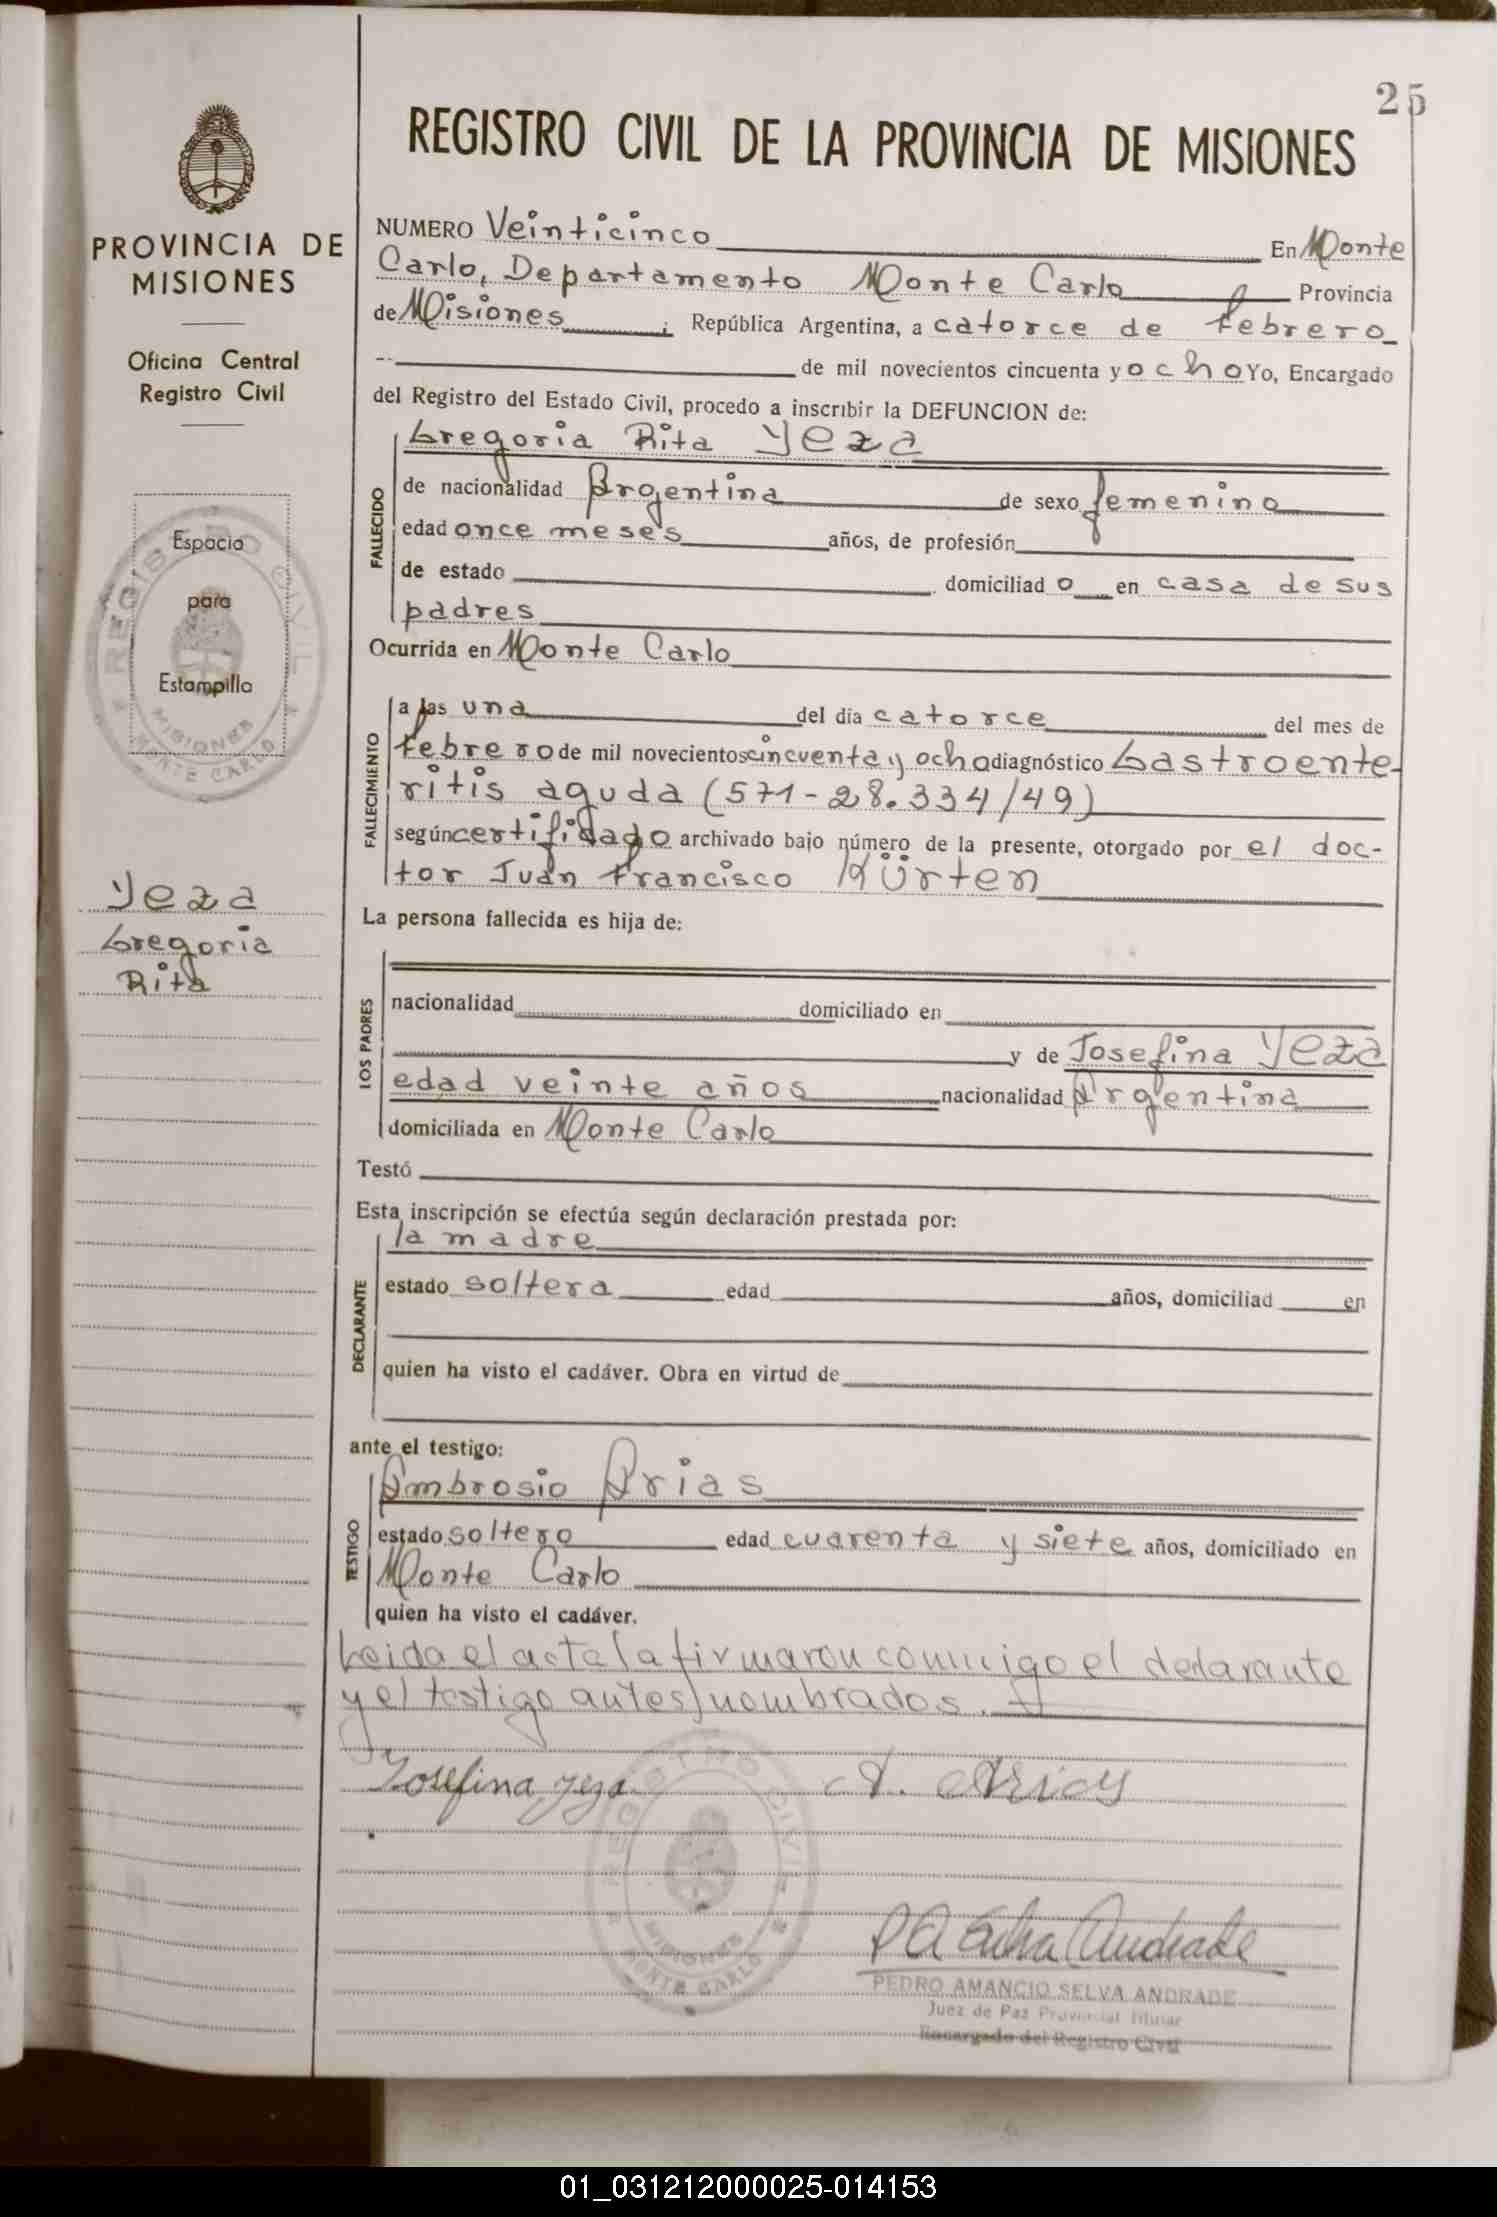 25
REGISTRO CIVIL DE LA PROVINCIA DE MISIONES
PROVINCIA DE
MISIONES
Oficina Central
Registro Civil
Espacio
para
Estampilla
REGISTRO CIVIL
MISIONES
MONTE CARLO
Yeza
Gregoria
Rita
NUMERO Veinticinco En Monte
Carlo, Departamento Monte Carlo Provincia
de Misiones ; República Argentina, a catorce de febrero
de mil novecientos cincuenta y ocho Yo, Encargado
del Registro del Estado Civil, procedo a inscribir la DEFUNCION de:
FALLECIDO
Gregoria Rita Yeza
de nacionalidad Argentina de sexo femenino
edad once meses años, de profesión
de estado domiciliado en casa de sus
padres
Ocurrida en Monte Carlo
FALLECIMIENTO
a las una del día catorce del mes de
febrero de mil novecientos cincuenta y ocho diagnóstico Gastroente-
ritis aguda (571-28.334/49)
según certificado archivado bajo número de la presente, otorgado por el doc-
tor Juan Francisco Kürten
La persona fallecida es hija de:
LOS PADRES
nacionalidad domiciliado en
y de Josefina Yeza
edad veinte años nacionalidad Argentina
domiciliada en Monte Carlo
Testó
Esta inscripción se efectúa según declaración prestada por:
DECLARANTE
la madre
estado soltera edad años, domiciliad en
quien ha visto el cadáver. Obra en virtud de
ante el testigo:
TESTIGO
Ambrosio Arias
estado soltero edad cuarenta y siete años, domiciliado en
Monte Carlo
quien ha visto el cadáver.
Leida el acta la firmaron conmigo el declarante
y el testigo antes nombrados.
Josefina Yeza A. Arias
REGISTRO CIVIL
MISIONES
MONTE CARLO
P A Selva Andrade
PEDRO AMANCIO SELVA ANDRADE
Juez de Paz Provincial Titular
Encargado del Registro Civil
01_031212000025-014153